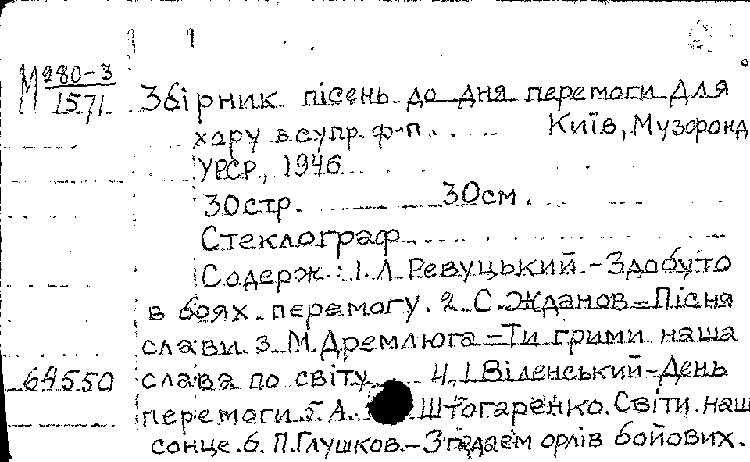 М 280-3
1571
Збірник пісень до дня перемоги для
хору в супр. ф-п. Київ, Музфонд
УРСР, 1946
30стр. 30см.
Стеклограф
Содерж.: 1. Л. Ревуцький - Здобуто
в боях перемогу. 2. С. Жданов - Пісня
слави 3. М. Дремлюга - Ти грими наша
слава по світу 4. І. Віленський - День
64550
перемоги 5. А. Штогаренко. Світи наш
сонце. 6. П. Глушков. - Згадаєм орлів бойових.